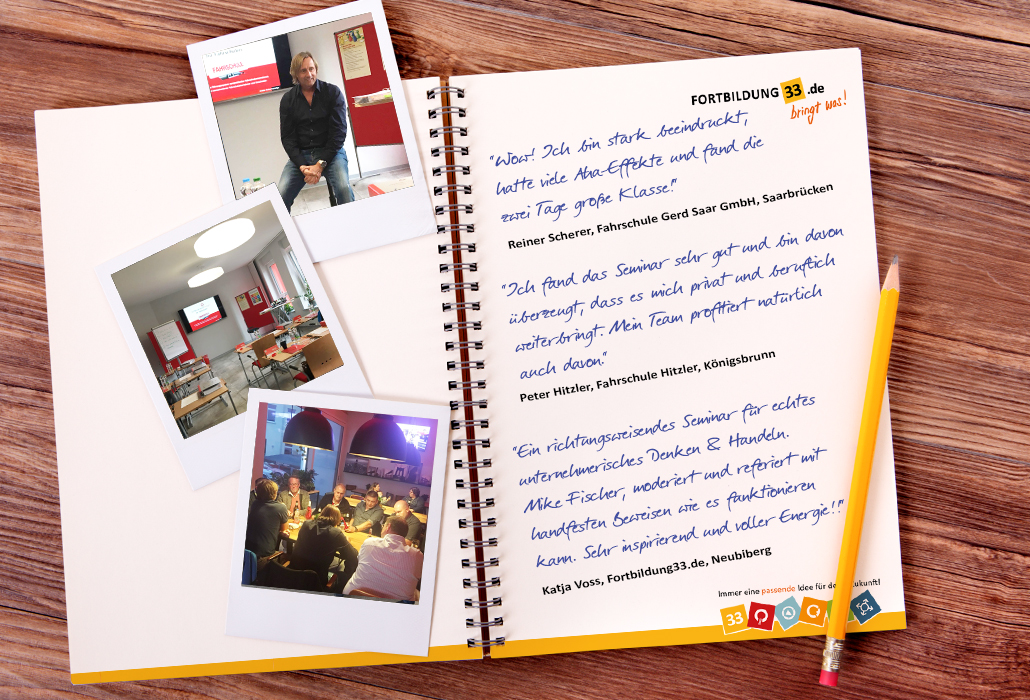 FAHRSCHULE
FORTBILDUNG 33.de
bringt was!
"Wow! Ich bin stark beeindruckt,
hatte viele Aha-Effekte und fand die
zwei Tage große Klasse!"
Reiner Scherer, Fahrschule Gerd Saar GmbH, Saarbrücken
"Ich fand das Seminar sehr gut und bin davon
überzeugt, dass es mich privat und beruflich
weiterbringt. Mein Team profitiert natürlich
auch davon."
Peter Hitzler, Fahrschule Hitzler, Königsbrunn
"Ein richtungsweisendes Seminar für echtes
unternehmerisches Denken & Handeln.
Mike Fischer, moderiert und referiert mit
handfesten Beweisen wie es funktionieren
kann. Sehr inspirierend und voller Energie!!"
Katja Voss, Fortbildung33.de, Neubiberg
Immer eine passende Idee für Zukunft!
33